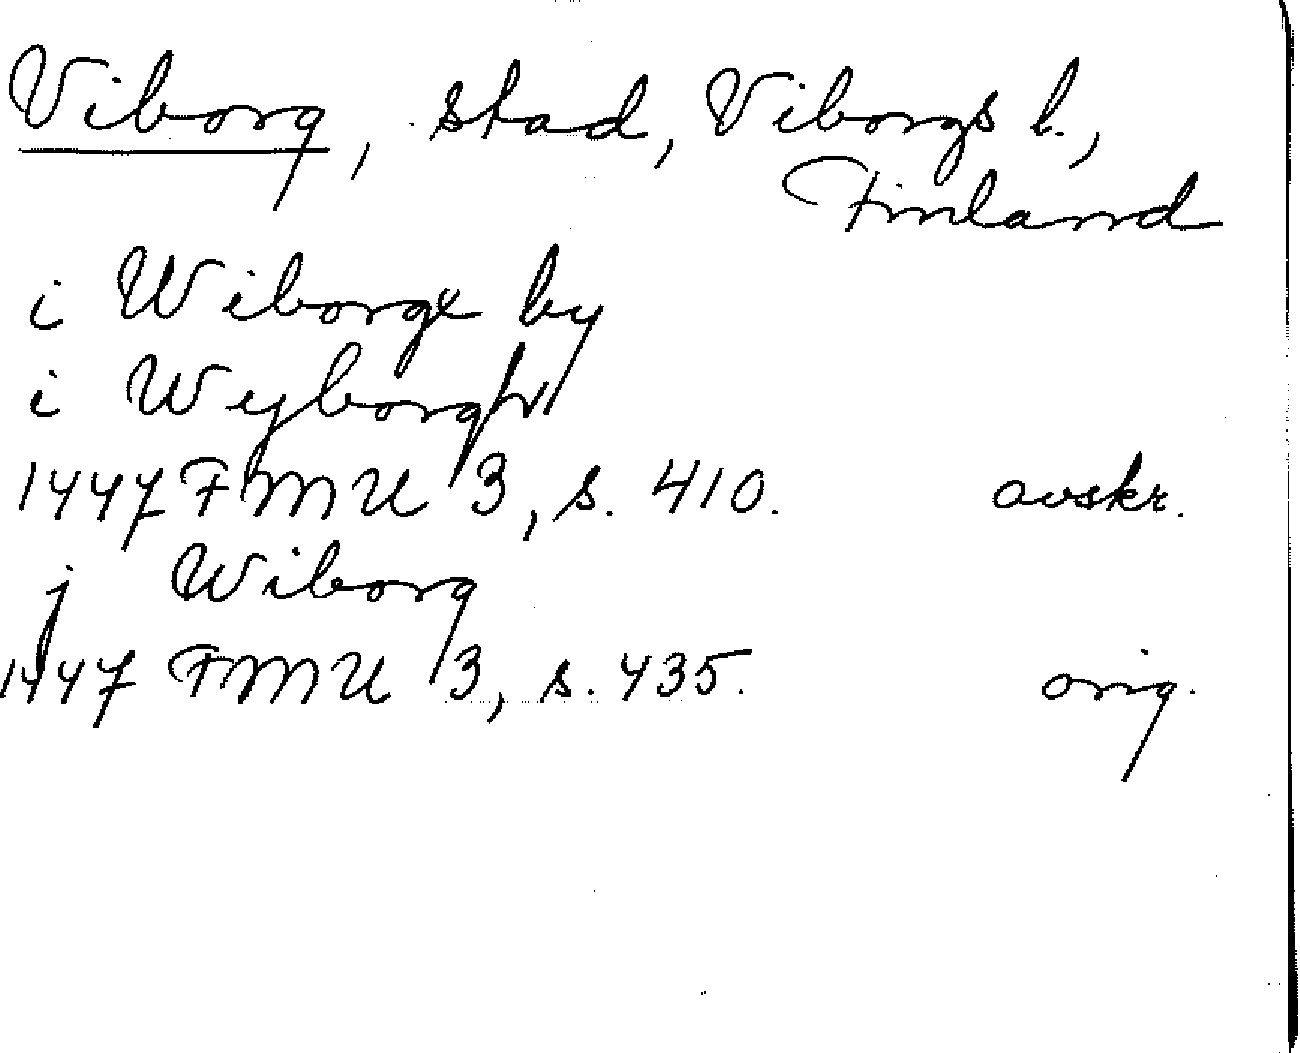 Viborg, stad, Viborgs l.,
Finland
i Wiborgx by
i Wyborgh
1447 FMU 3, s. 410. avskr.
j Wiborg
1447 FMU 3, s. 435. orig.